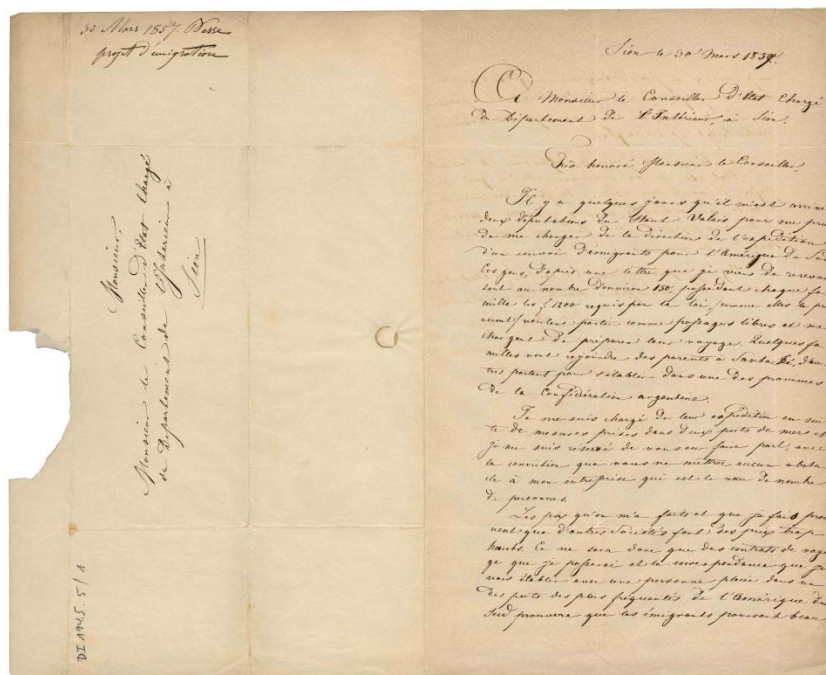 30 Mars 1857.
projet d'émigration
Monsieur,
Monsieur le Conseiller d'Etat Chargé
du Département de l'Intérieur à
Sion
DI 194.5.5/1
Sion le 30 Mars 1857.
A Monsieur le Conseiller d'Etat Chargé
du Département de l'Intérieur, à Sion.
Très honoré Monsieur le Conseiller,
Il y a quelques jours qu'il m'est arrivé
deux députations du Haut Valais pour me prier
de me charger de la direction de l'expédition
d'un convoi d'émigrants pour l'Amérique du Sud
Ces gens, d'après une lettre que je viens de recevoir
sont au nombre d'environ 150, possédant chaque fa
mille les f 1200 requis par la loi, somme
veulent partir comme passagers libres et me
chargent de préparer leur voyage. Quelques fa
milles vont rejoindre des parents à Santa Fé, d'au
tres partent pour s'établir dans une des provinces
de la Confédération argentine.
Je me suis chargé de leur expédition en sui
te de mesures prises dans deux ports de mers et
je me suis reservé de vous en faire part, avec
la conviction que vous ne mettrez aucun obsta
cle à mon entreprise qui est le vœu de nombre
de personnes.
Les prix qu'on m'a faits et que je fais prou
vent que d'autres sociétés font des prix trop
hauts. Ce ne sera donc que des contrats de voya
ge que je passerai et la correspondance que je
vais établir avec une personne placée dans un
des ports des plus fréquentés de l'Amérique du
Sud prouvera que les émigrants pourront beau